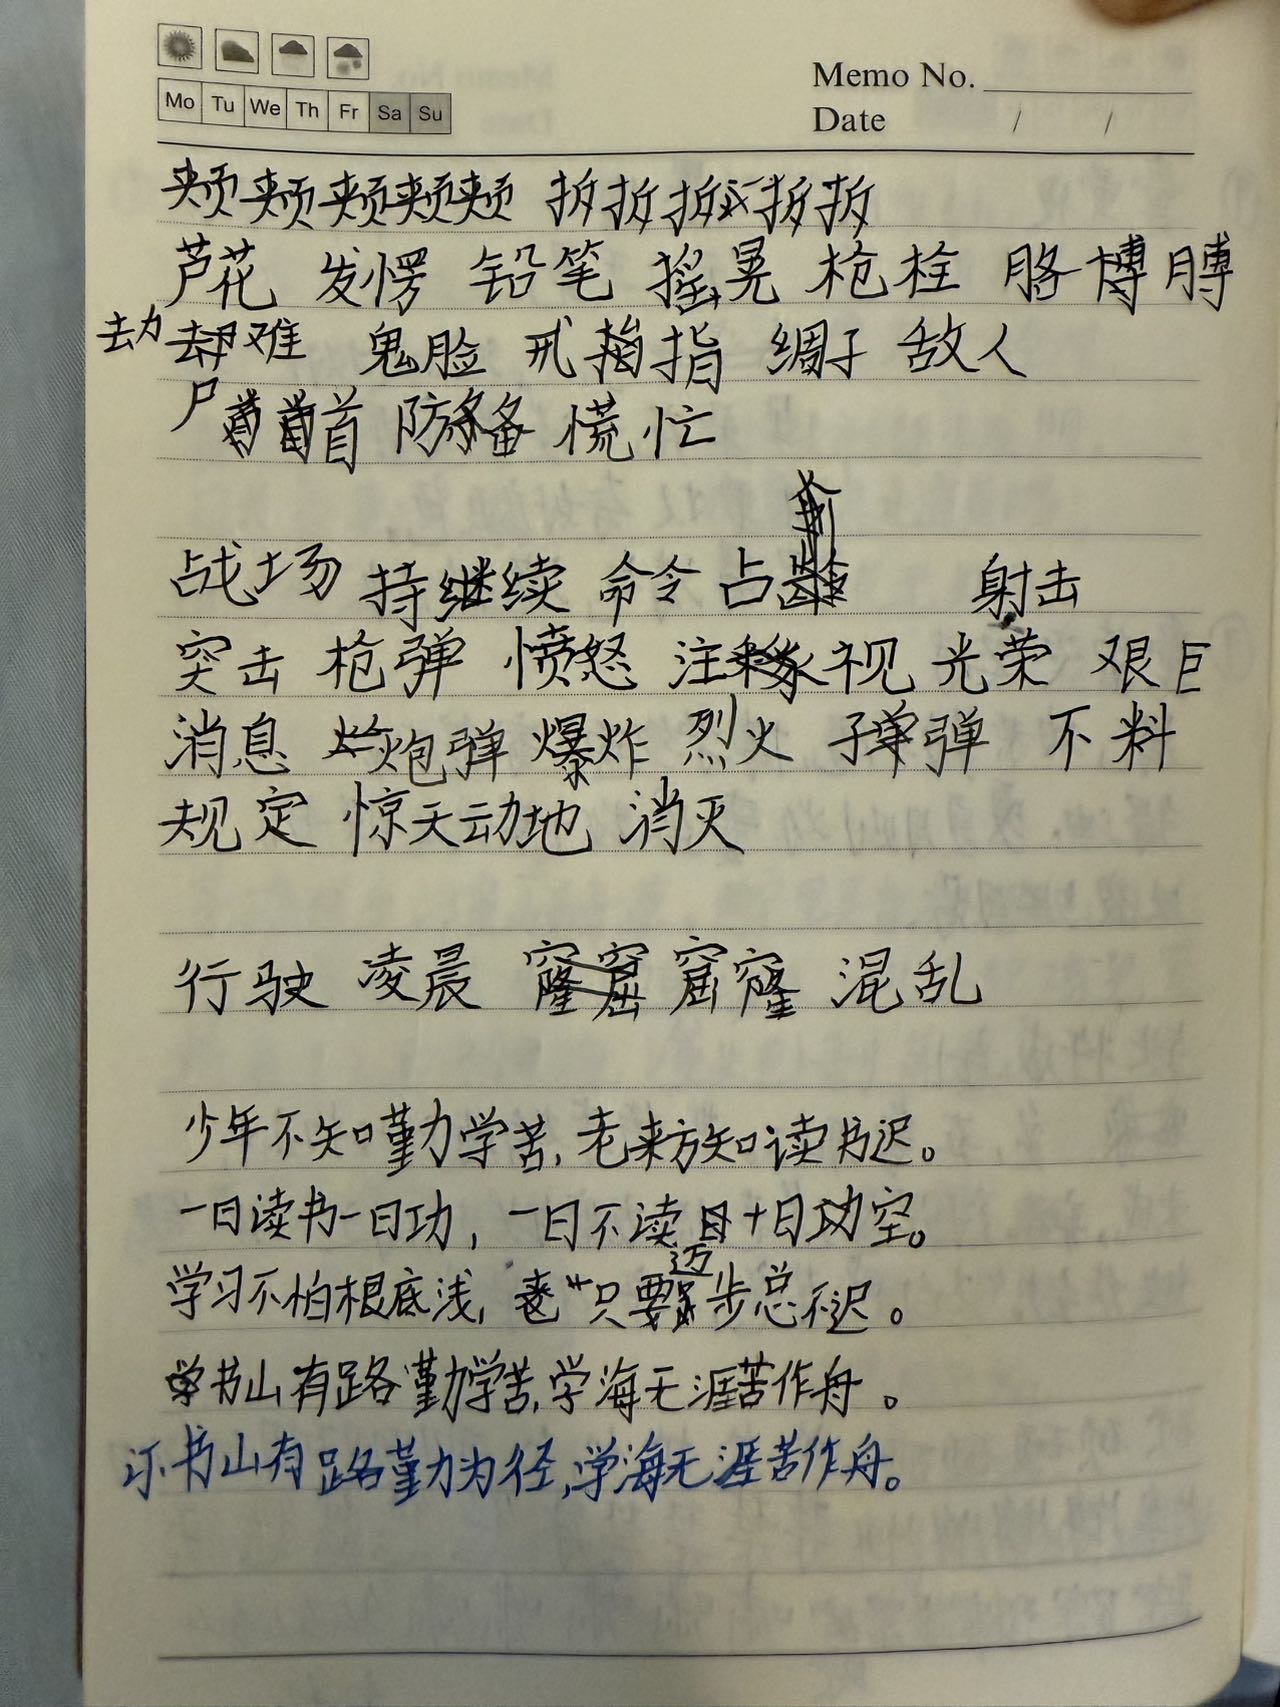 Mo Tu We Th Fr Sa Su
Memo No.
Date / /
颊颊颊颊颊 拆拆拆拆拆
芦花 发愣 铅笔 摇晃 枪栓 胳博膊
劫 却难 鬼脸 戒指指 绸子 敌人
尸 首 防备 慌忙
前
战场 持继续 命令 占 射击
突击 枪弹 愤怒 注视 光荣 艰巨
消息 炮弹 爆炸 烈火 子弹弹 不料
规定 惊天动地 消灭
行驶 凌晨 窿窟 窟窿 混乱
少年不知勤学苦,老来方知读书迟。
一日读书一日功,一日不读十日功空。
迈
学习不怕根底浅,只要步总不迟。
书山有路勤学苦,学海无涯苦作舟。
订书山有路勤为径,学海无涯苦作舟。